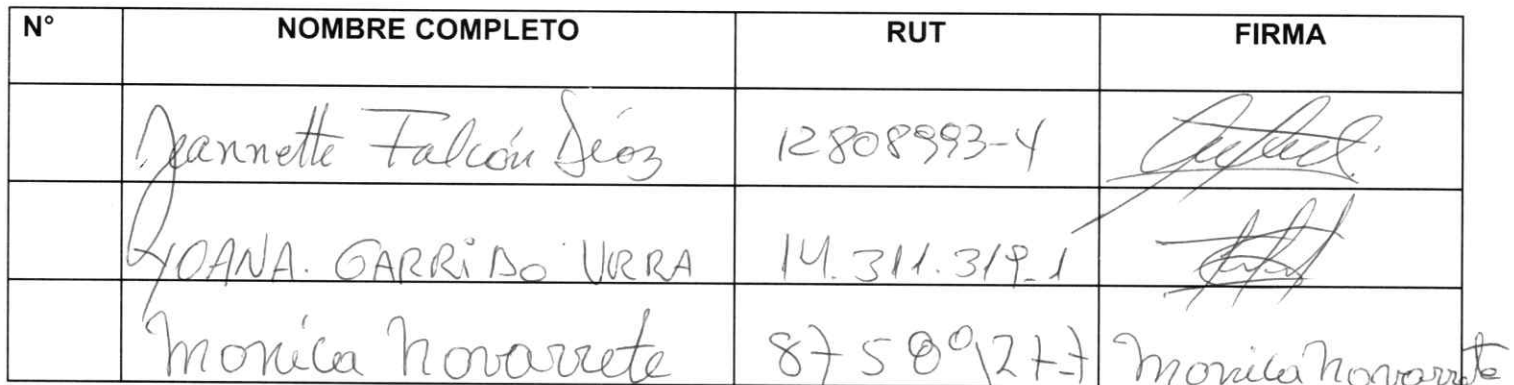 N° NOMBRE COMPLETO RUT FIRMA
Jeannette Falcón 12808993-4
YOANA. GARRIDO URRA 14.311.319-1
Monica Navarrete Monica Navarrete